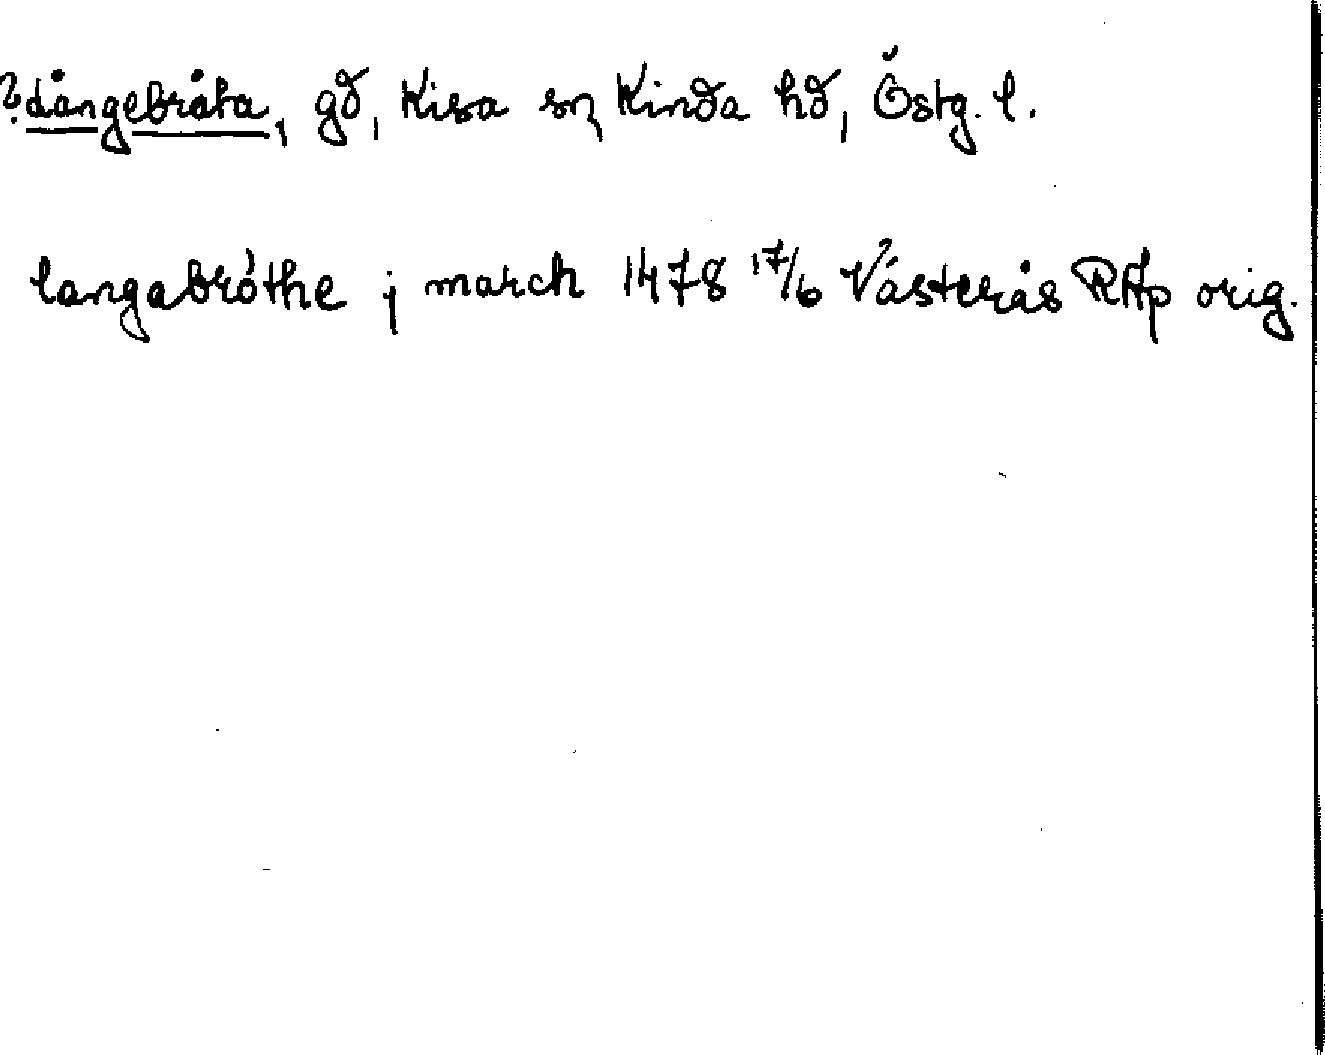 ?Långebråta, gd, Kisa sn, Kinda hd, Östg. l.
langabróthe j march 1478 17/6 Västerås RAp orig.